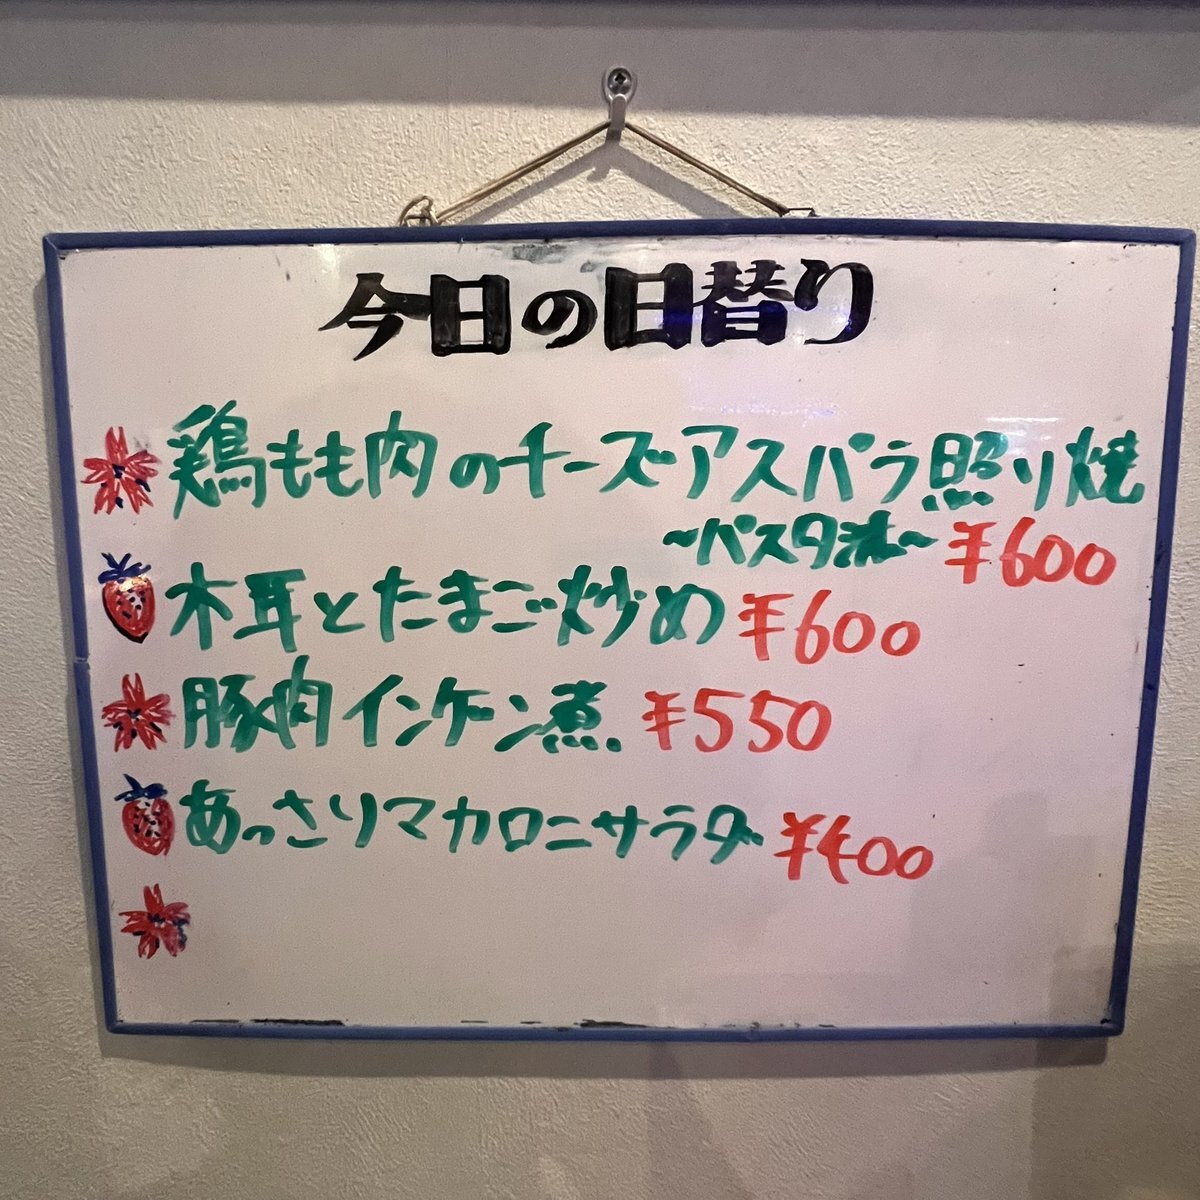 今日の日替り
鶏もも肉のチーズアスパラ照り焼
～パスタ添～ ¥600
木耳とたまご炒め ¥600
豚肉インゲン煮 ¥550
あっさりマカロニサラダ ¥400